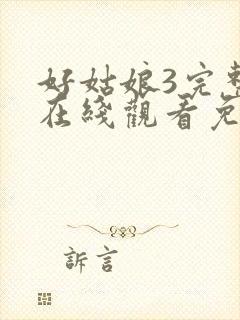 好姑娘3完整
在綫觀看免
訴言